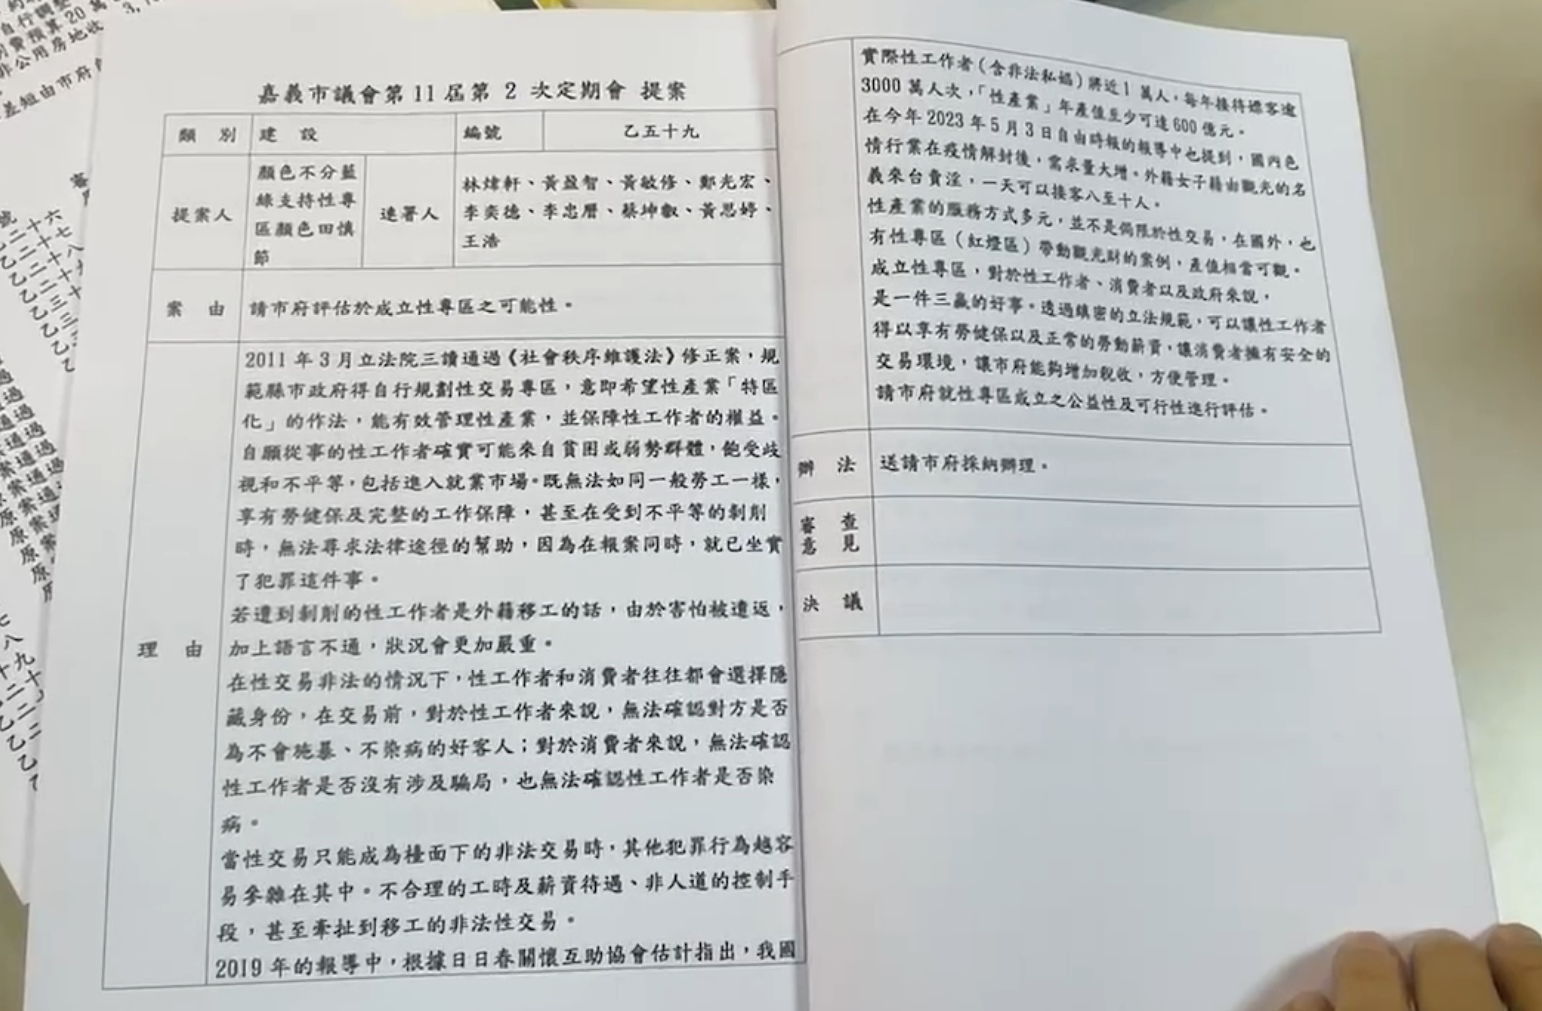 嘉義市議會第11屆第 2 次定期會 提案
類 別 建 設 編號 乙五十九
提案人
顏色不分藍
綠支持性專
區顏色田慎
節
連署人
林煒軒、黃盈智、黃敏修、鄭光宏、
李奕德、李忠曆、蔡坤叡、黃思婷、
王浩
案 由 請市府評估於成立性專區之可能性。
理 由
2011 年 3 月立法院三讀通過《社會秩序維護法》修正案，規
範縣市政府得自行規劃性交易專區，意即希望性產業「特區
化」的作法，能有效管理性產業，並保障性工作者的權益。
自願從事的性工作者確實可能來自貧困或弱勢群體，飽受歧
視和不平等，包括進入就業市場。既無法如同一般勞工一樣，
享有勞健保及完整的工作保障，甚至在受到不平等的剝削
時，無法尋求法律途徑的幫助，因為在報案同時，就已坐實
了犯罪這件事。
若遭到剝削的性工作者是外籍移工的話，由於害怕被遣返，
加上語言不通，狀況會更加嚴重。
在性交易非法的情況下，性工作者和消費者往往都會選擇隱
藏身份，在交易前，對於性工作者來說，無法確認對方是否
為不會施暴、不染病的好客人；對於消費者來說，無法確認
性工作者是否沒有涉及騙局，也無法確認性工作者是否染
病。
當性交易只能成為檯面下的非法交易時，其他犯罪行為越容
易參雜在其中。不合理的工時及薪資待遇、非人道的控制手
段，甚至牽扯到移工的非法性交易。
2019 年的報導中，根據日日春關懷互助協會估計指出，我國
實際性工作者（含非法私娼）將近 1 萬人，每年接待嫖客逾
3000 萬人次，「性產業」年產值至少可達 600 億元。
在今年 2023 年 5 月 3 日自由時報的報導中也提到，國內色
情行業在疫情解封後，需求量大增。外籍女子藉由觀光的名
義來台賣淫，一天可以接客八至十人。
性產業的服務方式多元，並不是侷限於性交易，在國外，也
有性專區（紅燈區）帶動觀光財的案例，產值相當可觀。
成立性專區，對於性工作者、消費者以及政府來說，
是一件三贏的好事。透過縝密的立法規範，可以讓性工作者
得以享有勞健保以及正常的勞動薪資，讓消費者擁有安全的
交易環境，讓市府能夠增加稅收，方便管理。
請市府就性專區成立之公益性及可行性進行評估。
辦 法 送請市府採納辦理。
審 查
意 見
決 議